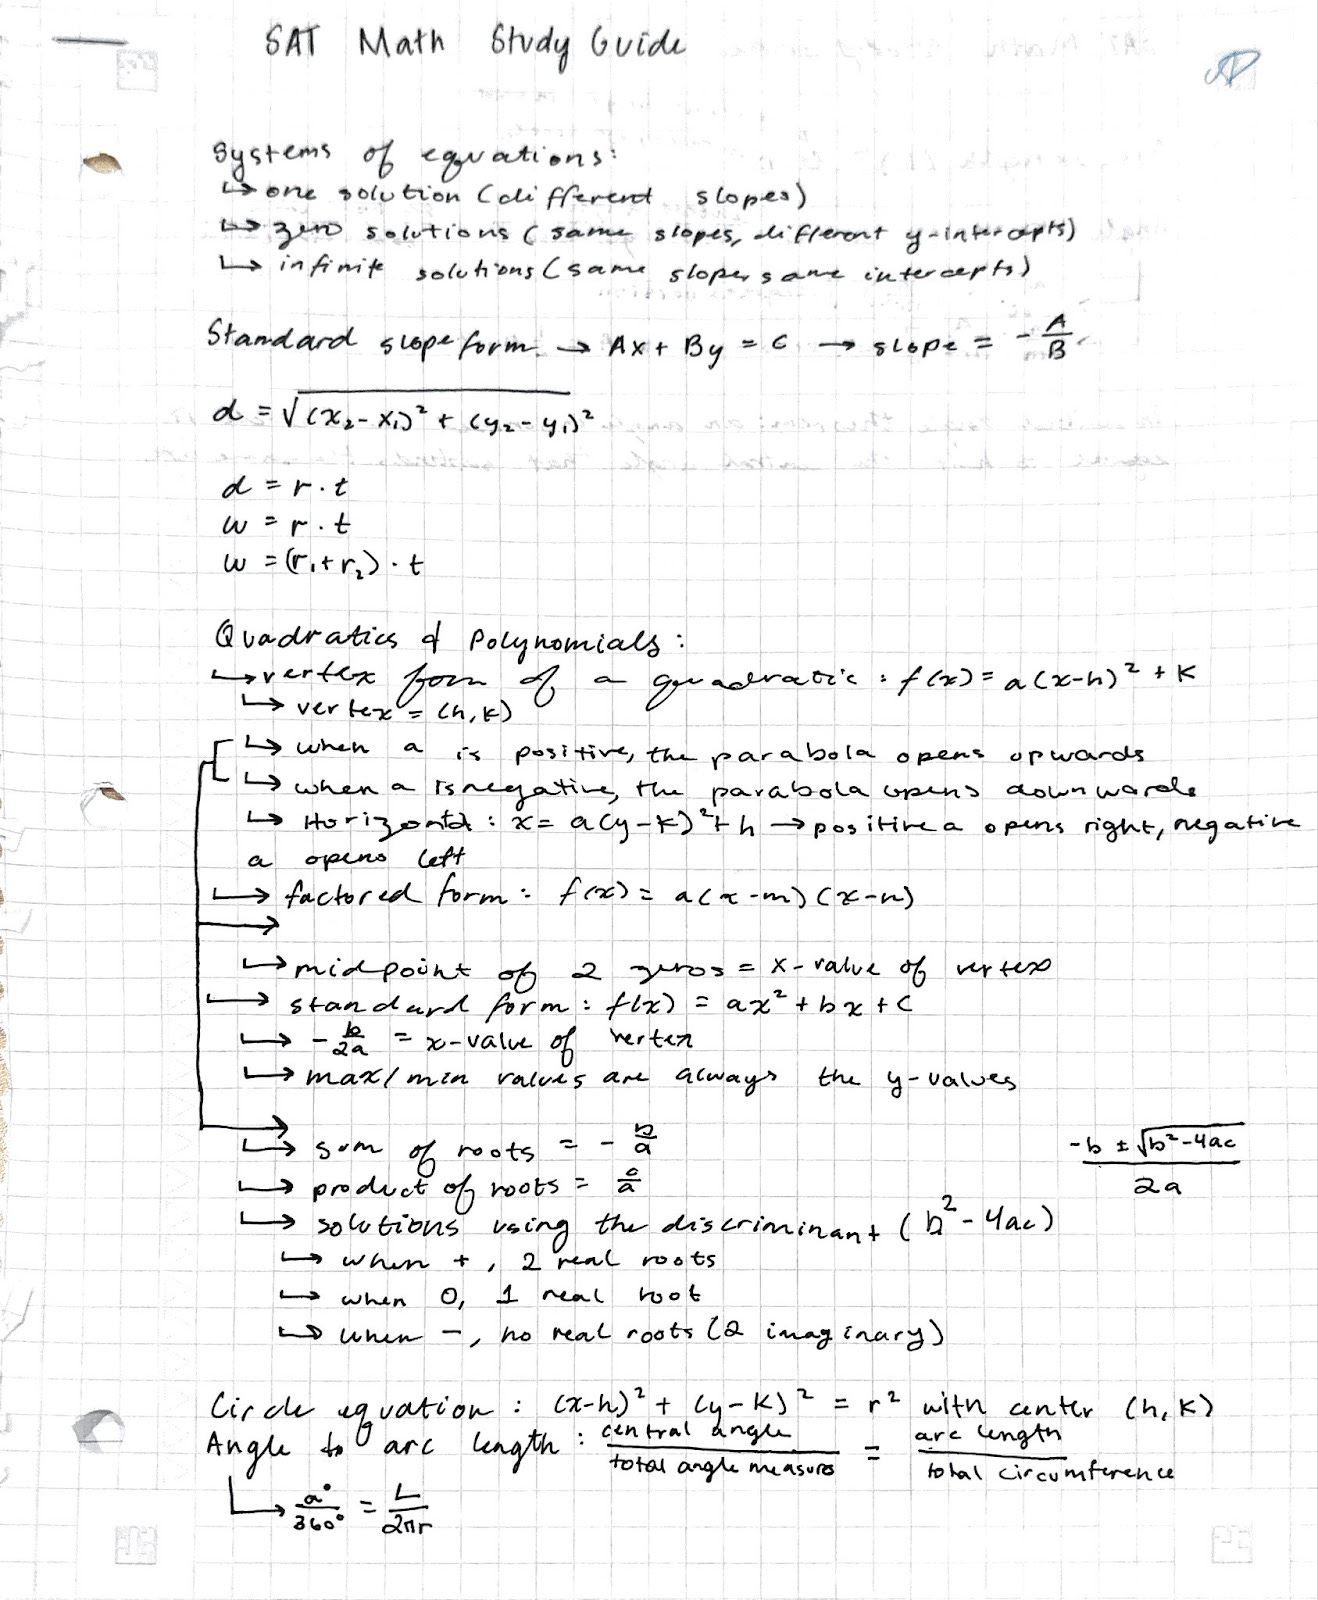 SAT Math Study Guide
Systems of equations:
↳ one solution (different slopes)
↳ zero solutions (same slopes, different y-intercepts)
↳ infinite solutions (same slope, same intercepts)
Standard slope form → Ax + By = C → slope = -A/B
d = √(x₂-x₁)² + (y₂-y₁)²
d = r·t
w = r·t
w = (r₁+r₂)·t
Quadratics & Polynomials:
↳ vertex form of a quadratic: f(x) = a(x-h)² + k
↳ vertex = (h,k)
↳ when a is positive, the parabola opens upwards
↳ when a is negative, the parabola opens downwards
↳ Horizontal: x = a(y-k)² + h → positive a opens right, negative
a opens left
↳ factored form: f(x) = a(x-m)(x-n)
↳ midpoint of 2 zeros = x-value of vertex
↳ standard form: f(x) = ax² + bx + c
↳ -b/2a = x-value of vertex
↳ max/min values are always the y-values
↳ sum of roots = -b/a
-b ± √b²-4ac / 2a
↳ product of roots = c/a
↳ solutions using the discriminant (b²-4ac)
↳ when +, 2 real roots
↳ when 0, 1 real root
↳ when -, no real roots (2 imaginary)
Circle equation: (x-h)² + (y-k)² = r² with center (h,k)
Angle to arc length: central angle/total angle measure = arc length/total circumference
↳ a°/360° = L/2πr